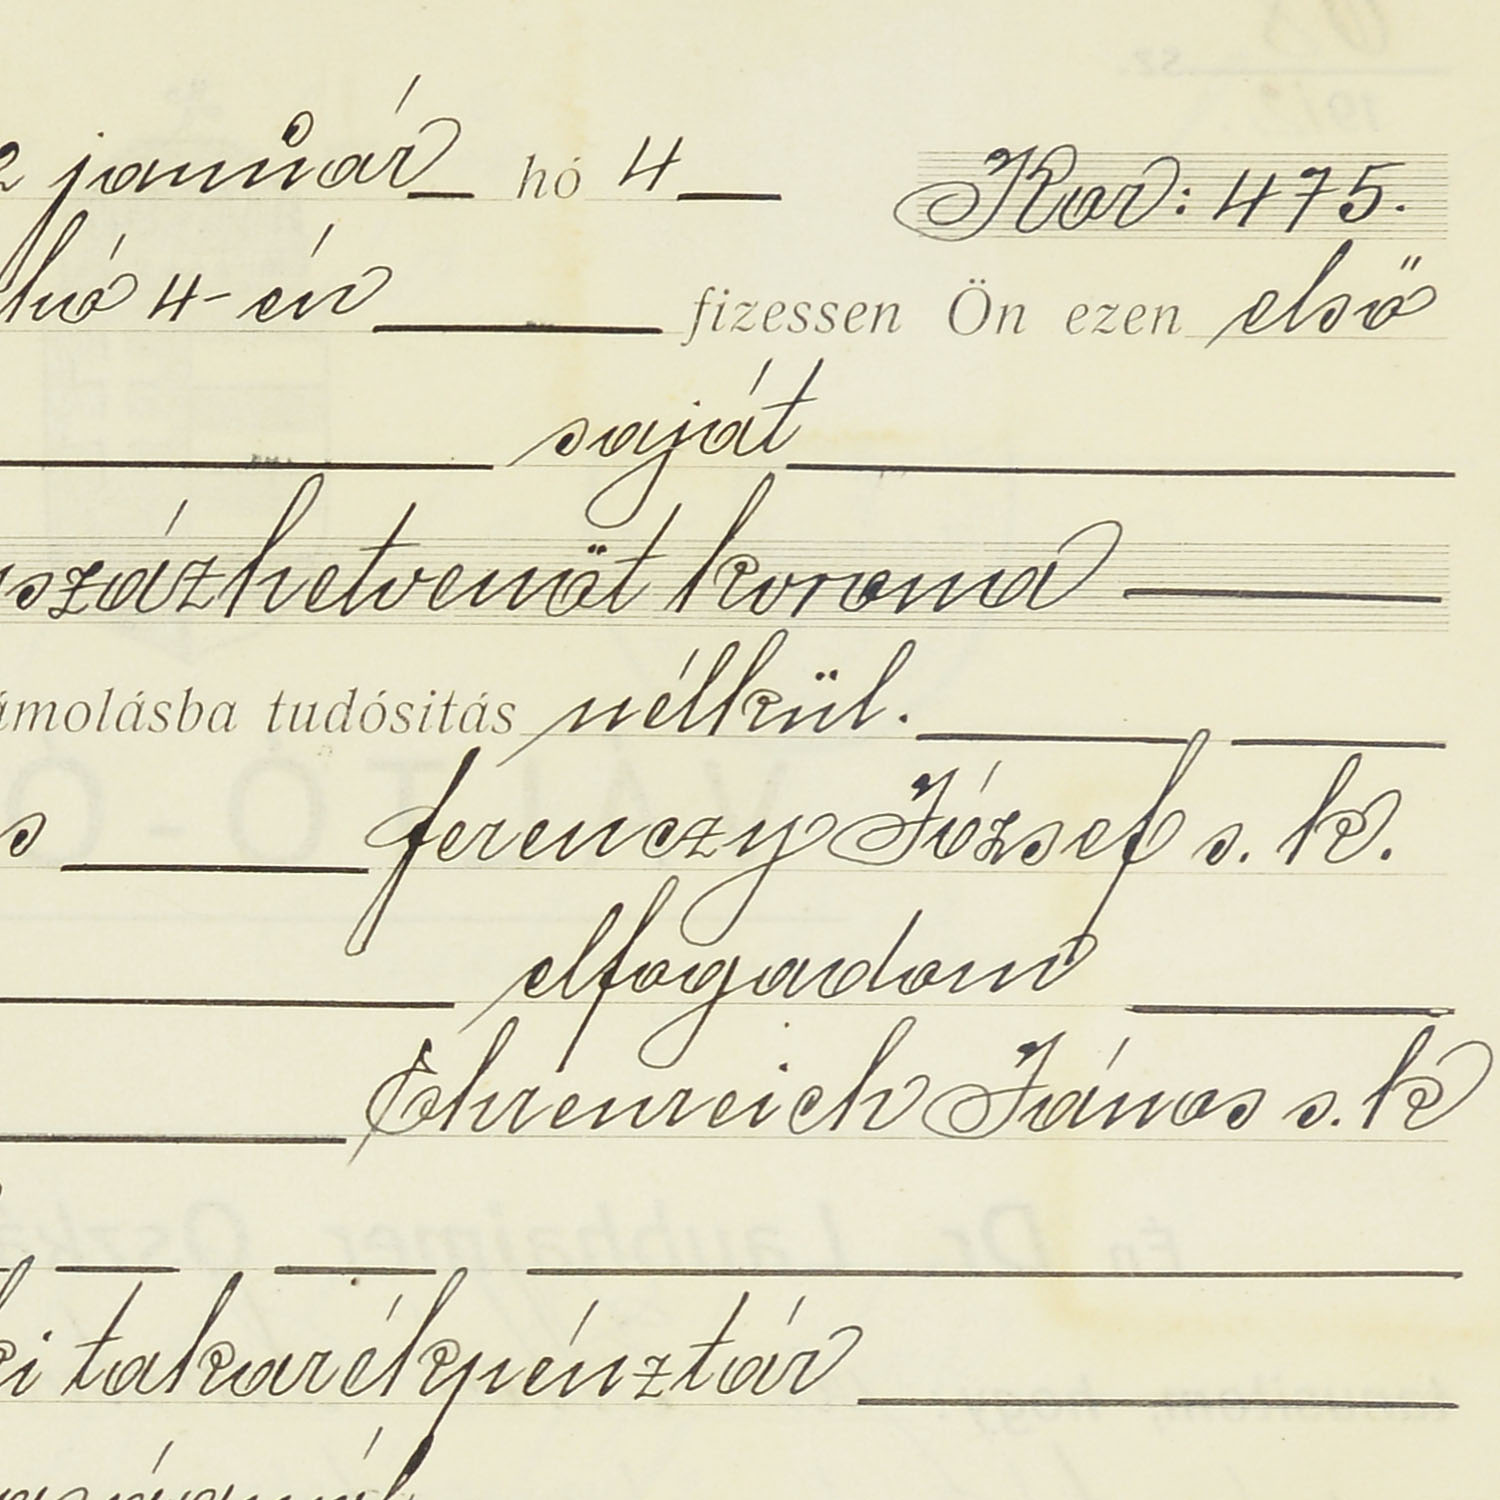 2 január hó 4 Kor: 475.
hó 4-én fizessen Ön ezen első
saját
százhetvenöt korona
ámolásba tudósitás nélkül.
s Ferenczy József s. k.
elfogadom
Ehrenreich János s. k
ki takarékpénztár